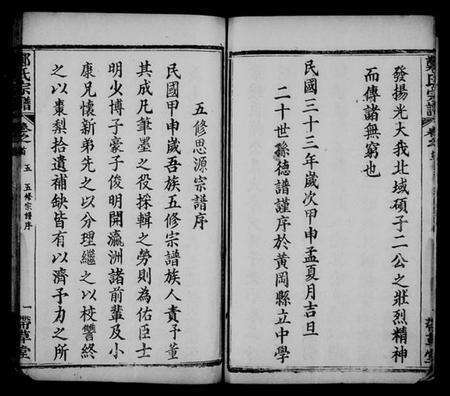 鄭氏宗譜
發揚光大我北域碩子二公之壯烈精神
而傳諸無窮也
民國三十三年歲次甲申孟夏月吉旦
二十世孫德譜謹序於黃岡縣立中學
五修思源宗譜序
民國甲申歲吾族五修宗譜族人責予董
其成凡筆墨之役採輯之勞則為佑臣士
明少博子豪子俊明開瀛洲諸前輩及小
康兄懷新弟先之以分理繼之以校讐終
之以棗梨拾遺補缺皆有以濟予力之所
鄭氏宗譜
卷之首
五修宗譜序
一
帶草堂